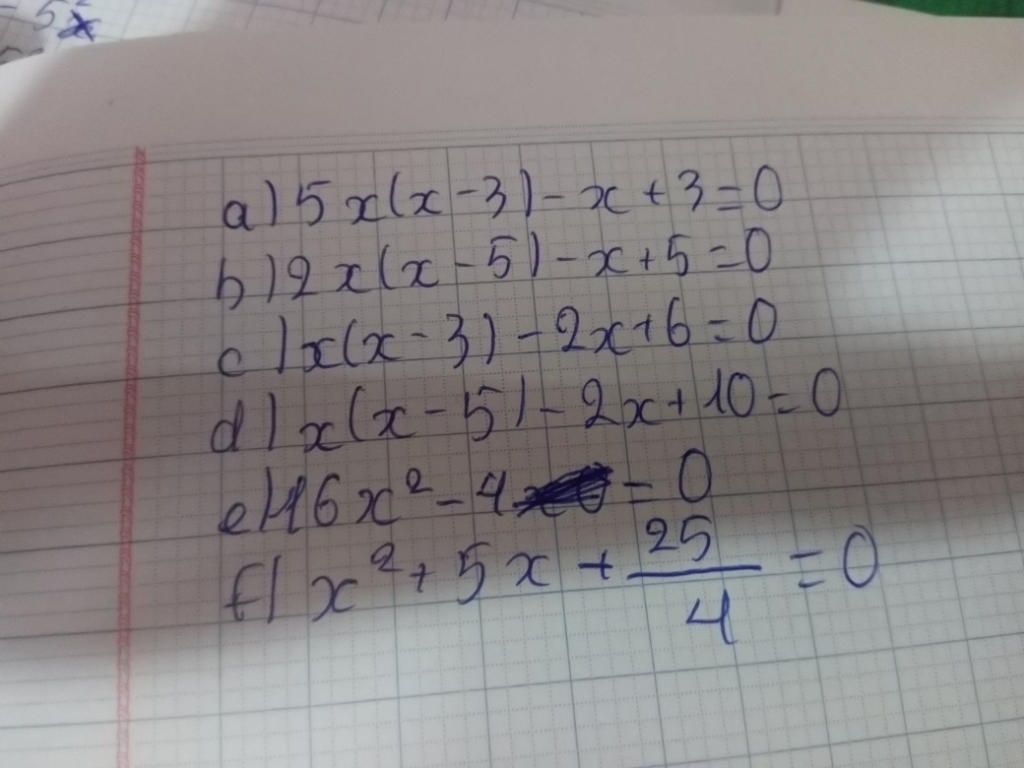 5x
a) 5x(x-3)-x+3=0
b) 2x(x-5)-x+5=0
c) x(x-3)-2x+6=0
d) x(x-5)-2x+10=0
e) 16x²-4=0
f) x²+5x+25/4=0